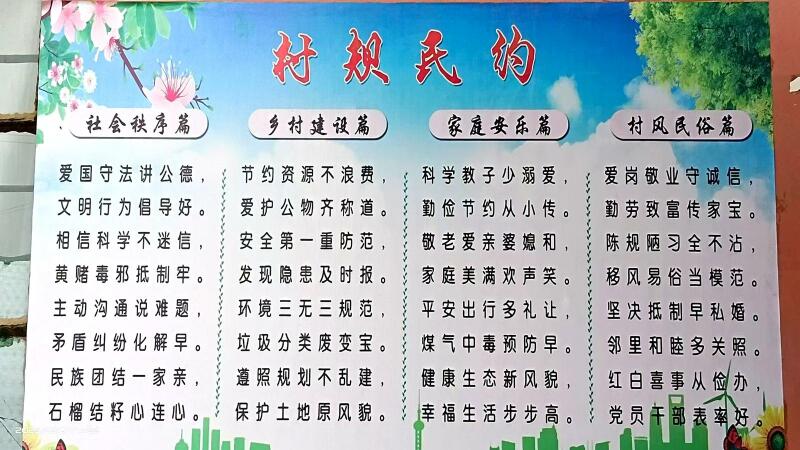 村规民约
社会秩序篇
爱国守法讲公德，
文明行为倡导好。
相信科学不迷信，
黄赌毒邪抵制牢。
主动沟通说难题，
矛盾纠纷化解早。
民族团结一家亲，
石榴结籽心连心。
乡村建设篇
节约资源不浪费，
爱护公物齐称道。
安全第一重防范，
发现隐患及时报。
环境三无三规范，
垃圾分类废变宝。
遵照规划不乱建，
保护土地原风貌。
家庭安乐篇
科学教子少溺爱，
勤俭节约从小传。
敬老爱亲婆媳和，
家庭美满欢声笑。
平安出行多礼让，
煤气中毒预防早。
健康生态新风貌，
幸福生活步步高。
村风民俗篇
爱岗敬业守诚信，
勤劳致富传家宝。
陈规陋习全不沾，
移风易俗当模范。
坚决抵制早私婚。
邻里和睦多关照。
红白喜事从俭办，
党员干部表率好。